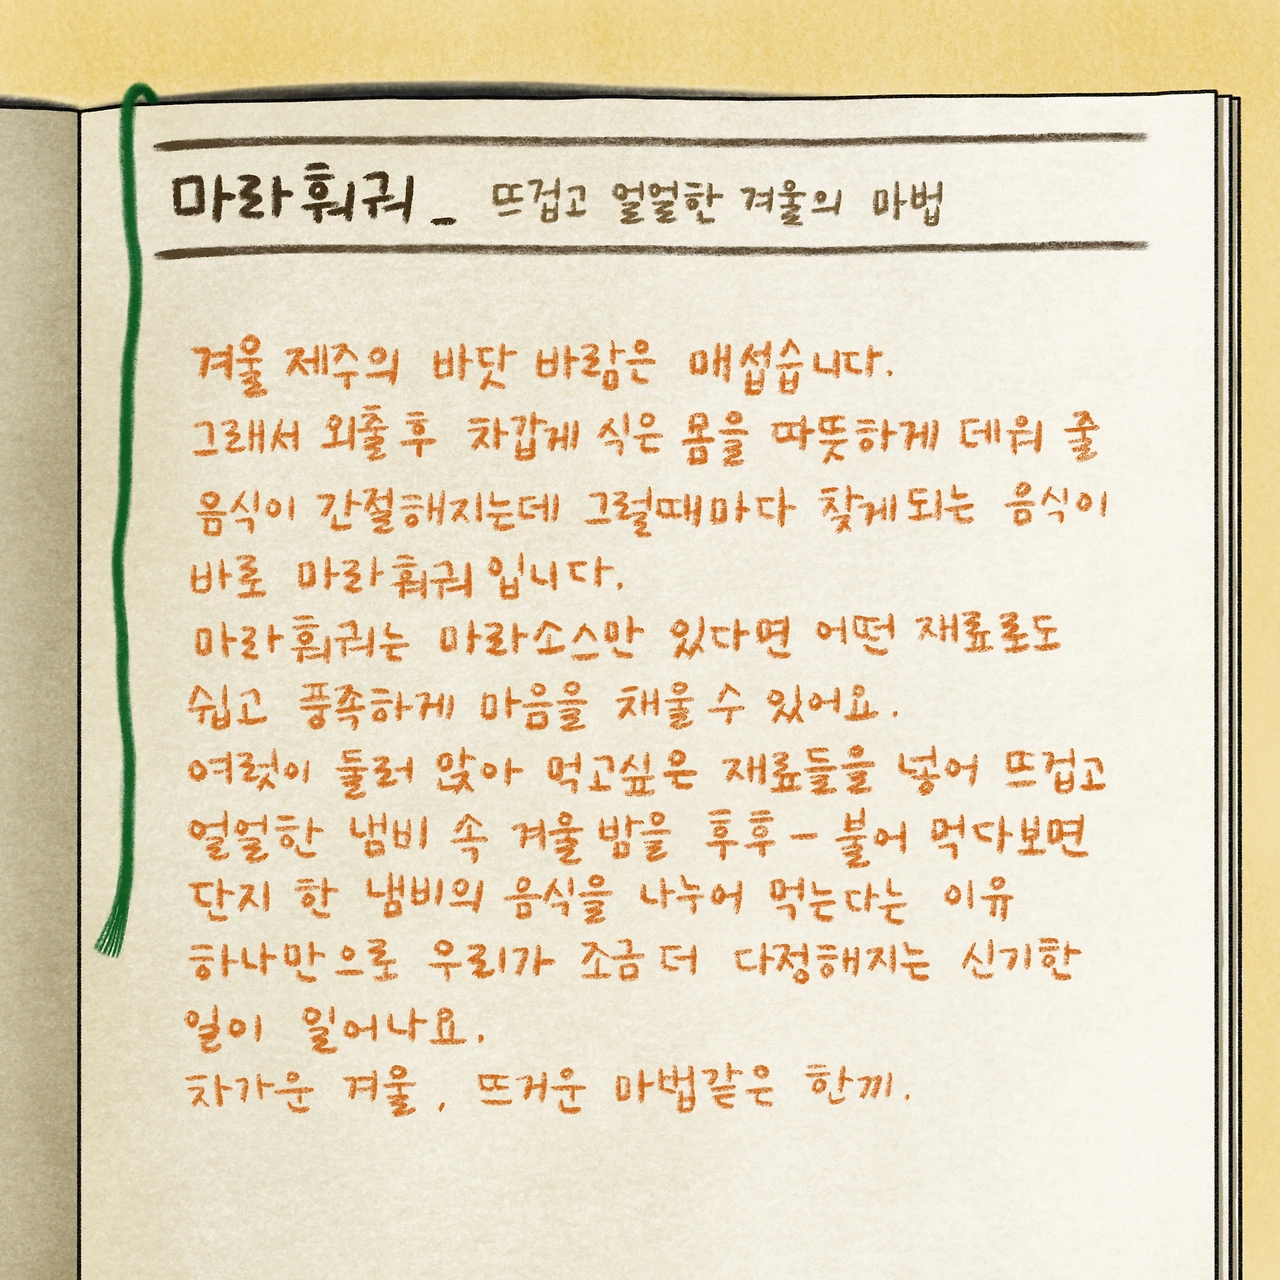 마라훠궈_ 뜨겁고 얼얼한 겨울의 마법
겨울 제주의 바닷 바람은 매섭습니다.
그래서 외출 후 차갑게 식은 몸을 따뜻하게 데워 줄
음식이 간절해지는데 그럴때마다 찾게되는 음식이
바로 마라훠궈 입니다.
마라훠궈는 마라소스만 있다면 어떤 재료로도
쉽고 풍족하게 마음을 채울 수 있어요.
여럿이 둘러 앉아 먹고싶은 재료들을 넣어 뜨겁고
얼얼한 냄비 속 겨울 밤을 후후-불어 먹다보면
단지 한 냄비의 음식을 나누어 먹는다는 이유
하나만으로 우리가 조금 더 다정해지는 신기한
일이 일어나요.
차가운 겨울, 뜨거운 마법같은 한끼.